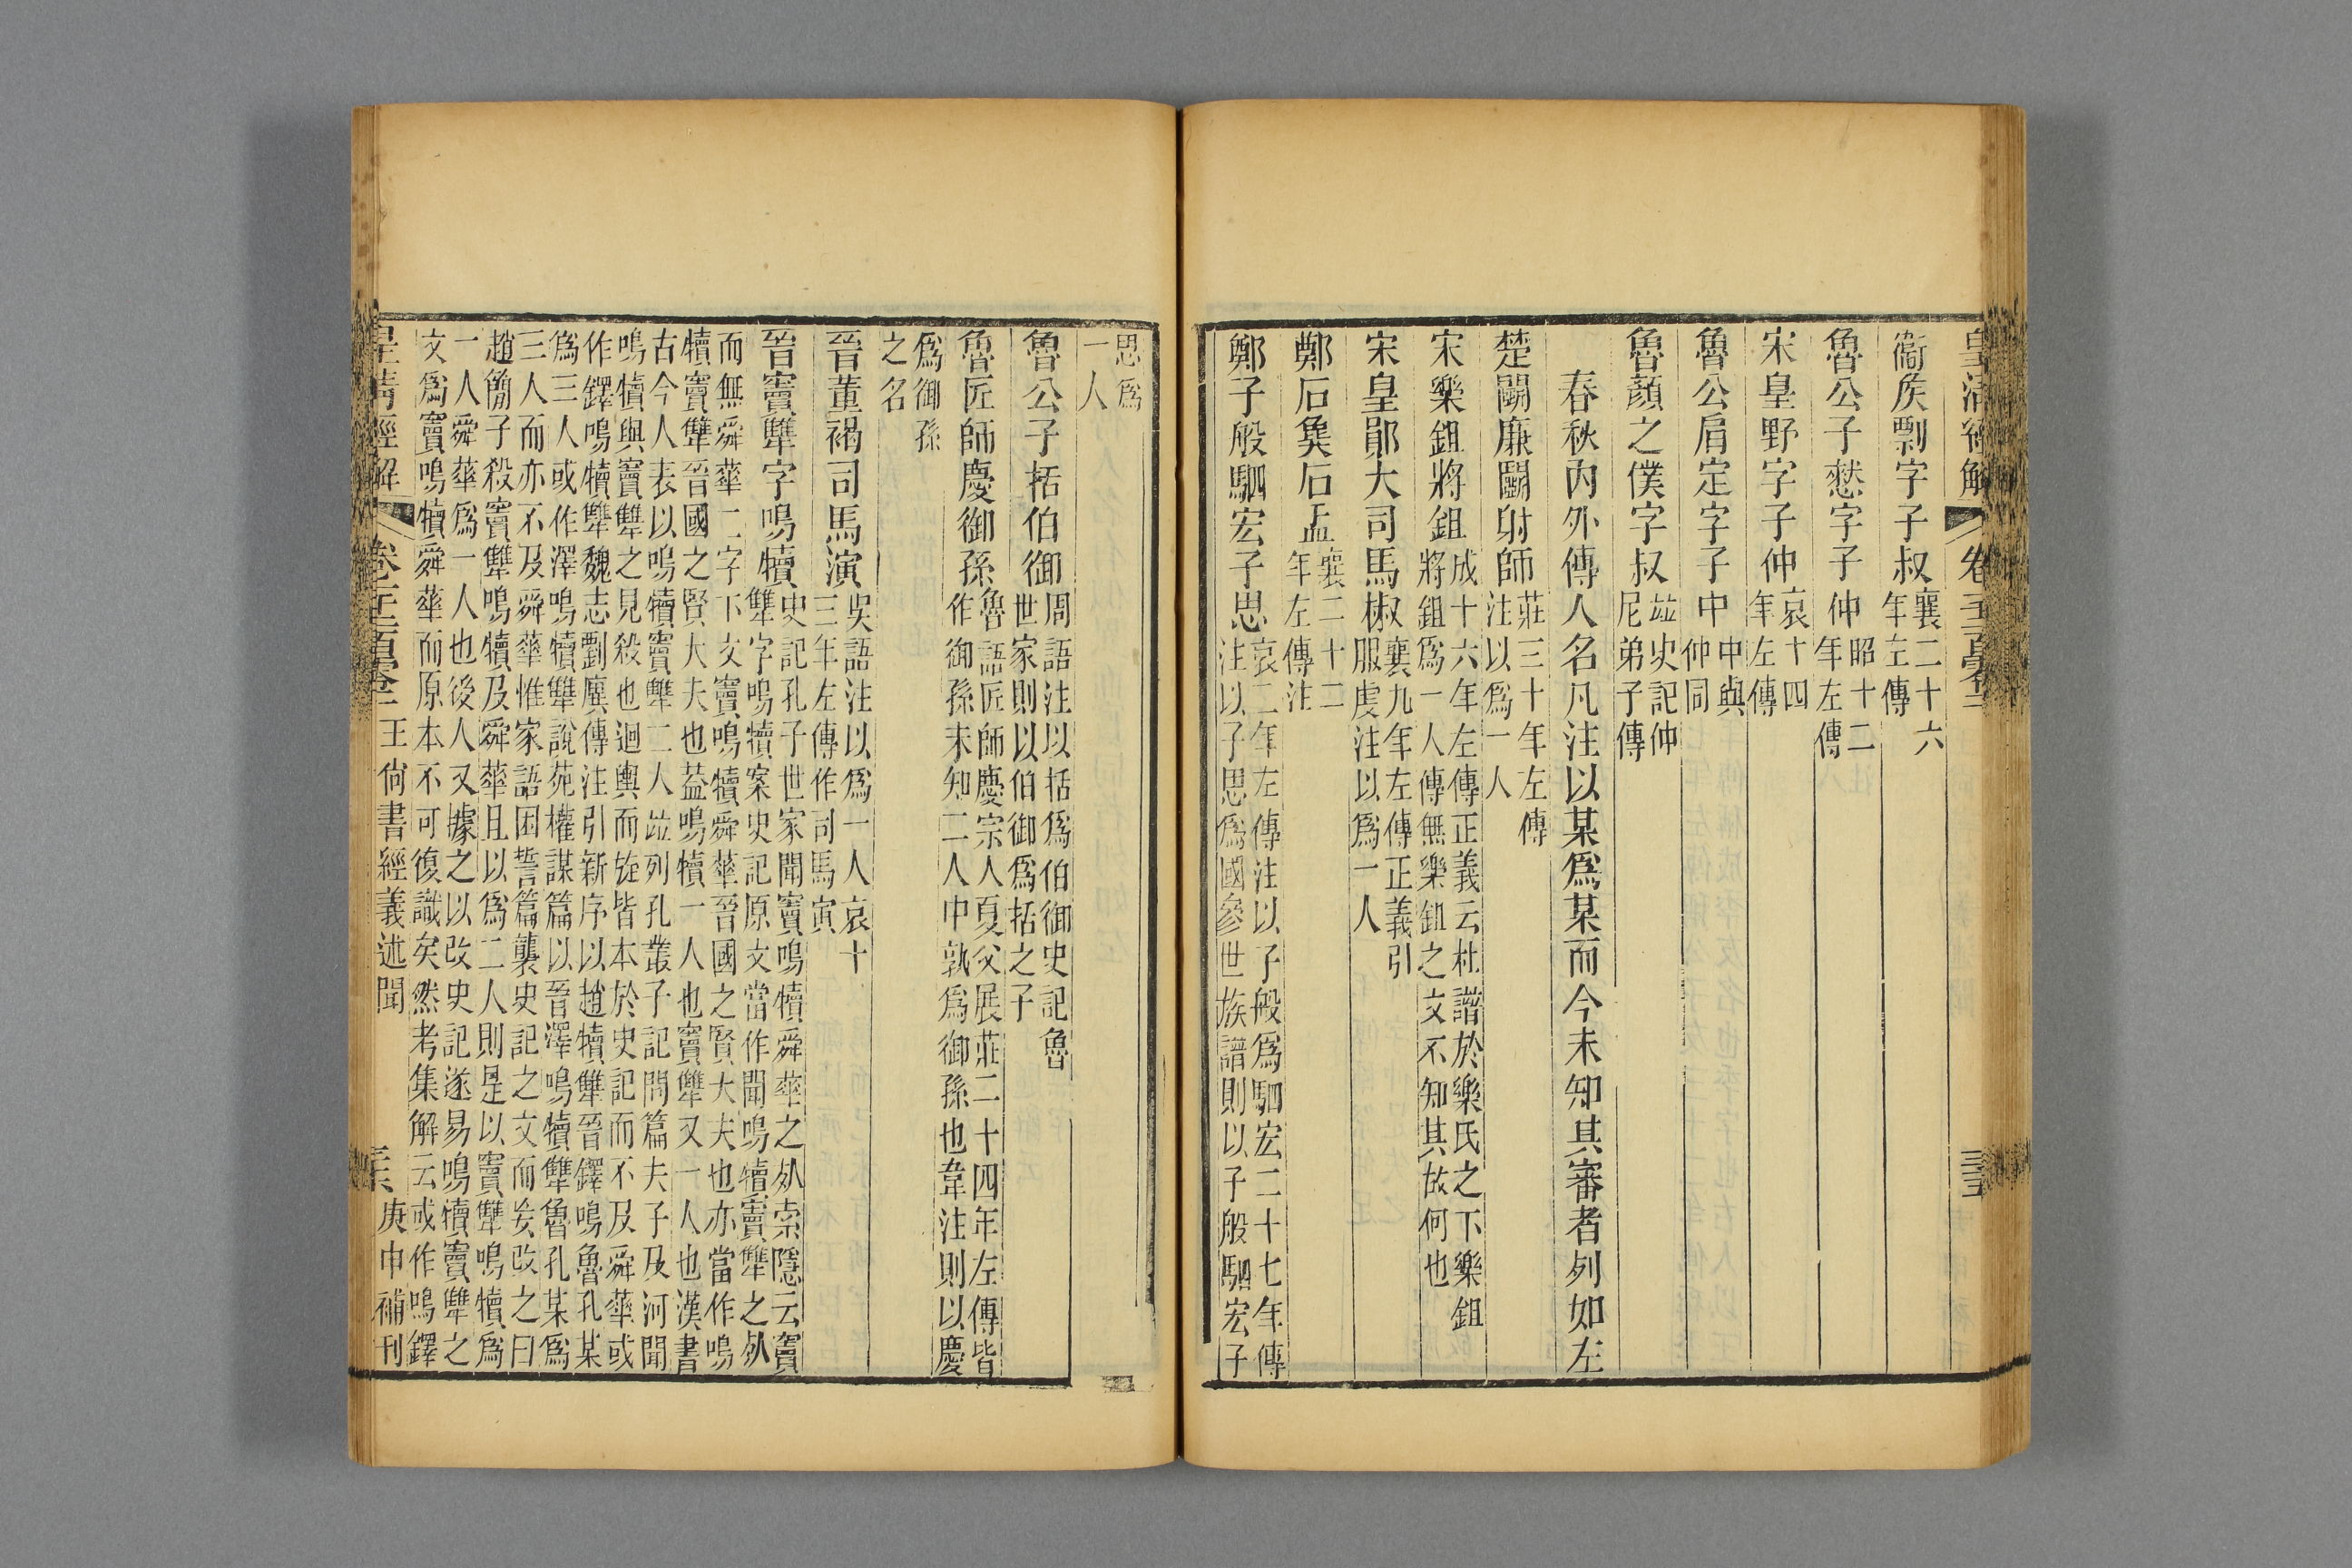 皇清經解 卷一千二百零二 三五
衞矦剽字子叔
襄二十六
年左傳
魯公子憖字子仲
昭十二
年左傳
宋皇野字子仲
哀十四
年左傳
魯公肩定字子中
中與
仲同
魯顏之僕字叔
竝史記仲
尼弟子傳
春秋內外傳人名凡注以某爲某而今未知其審者列如左
楚鬬廉鬬射師
莊三十年左傳
注以爲一人
宋樂鉏將鉏
成十六年左傳正義云杜譜於樂氏之下樂鉏
將鉏爲一人傳無樂鉏之文不知其故何也
宋皇鄖大司馬椒
襄九年左傳正義引
服虔注以爲一人
鄭石㚟石盂
襄二十二
年左傳注
鄭子般駟宏子思
哀二年左傳注以子般爲駟宏二十七年傳
注以子思爲國參世族譜則以子般駟宏子
思爲
一人
魯公子括伯御
周語注以括爲伯御史記魯
世家則以伯御爲括之子
魯匠師慶御孫
魯語匠師慶宗人夏父展莊二十四年左傳皆
作御孫未知二人中孰爲御孫也韋注則以慶
爲御孫
之名
晉董褐司馬演
吳語注以爲一人哀十
三年左傳作司馬寅
晉竇犨字鳴犢
史記孔子世家聞竇鳴犢舜華之𣦸索隱云竇
犨字鳴犢案史記原文當作聞鳴犢竇犨之𣦸
而無舜華二字下文竇鳴犢舜華晉國之賢大夫也亦當作鳴
犢竇犨晉國之賢大夫也葢鳴犢一人也竇犨又一人也漢書
古今人表以鳴犢竇犨二人竝列孔叢子記問篇夫子及河聞
鳴犢與竇犨之見殺也迴輿而旋皆本於史記而不及舜華或
作鐸鳴犢犨魏志劉廙傳注引新序以趙犢犨晉鐸鳴魯孔某
爲三人或作澤鳴犢犨說苑權謀篇以晉澤鳴犢犨魯孔某爲
三人而亦不及舜華惟家語困誓篇襲史記之文而妄改之曰
趙簡子殺竇犨鳴犢及舜華且以爲二人則是以竇犨鳴犢爲
一人舜華爲一人也後人又據之以改史記遂易鳴犢竇犨之
文爲竇鳴犢舜華而原本不可復識矣然考集解云或作鳴鐸
皇清經解 卷一千二百零二 王尙書經義述聞 三六 庚申補刊